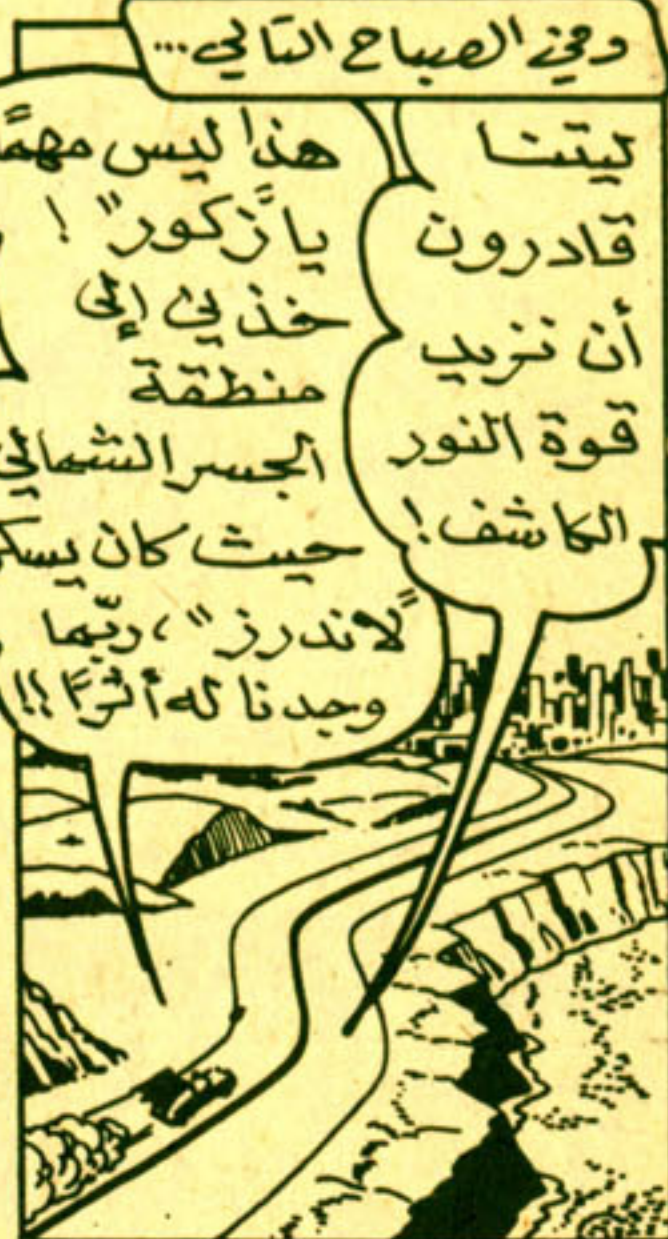 وفي الصباح التالي...
ليتنا
قادرون
أن نزيد
قوة النور
الكاشف!
هذا ليس مهمًّا
يا "زكور"!
خذني إلى
منطقة
الجسر الشمالي
حيث كان يسكن
"لاندرز"، ربّما
وجدنا له أثرًا!!